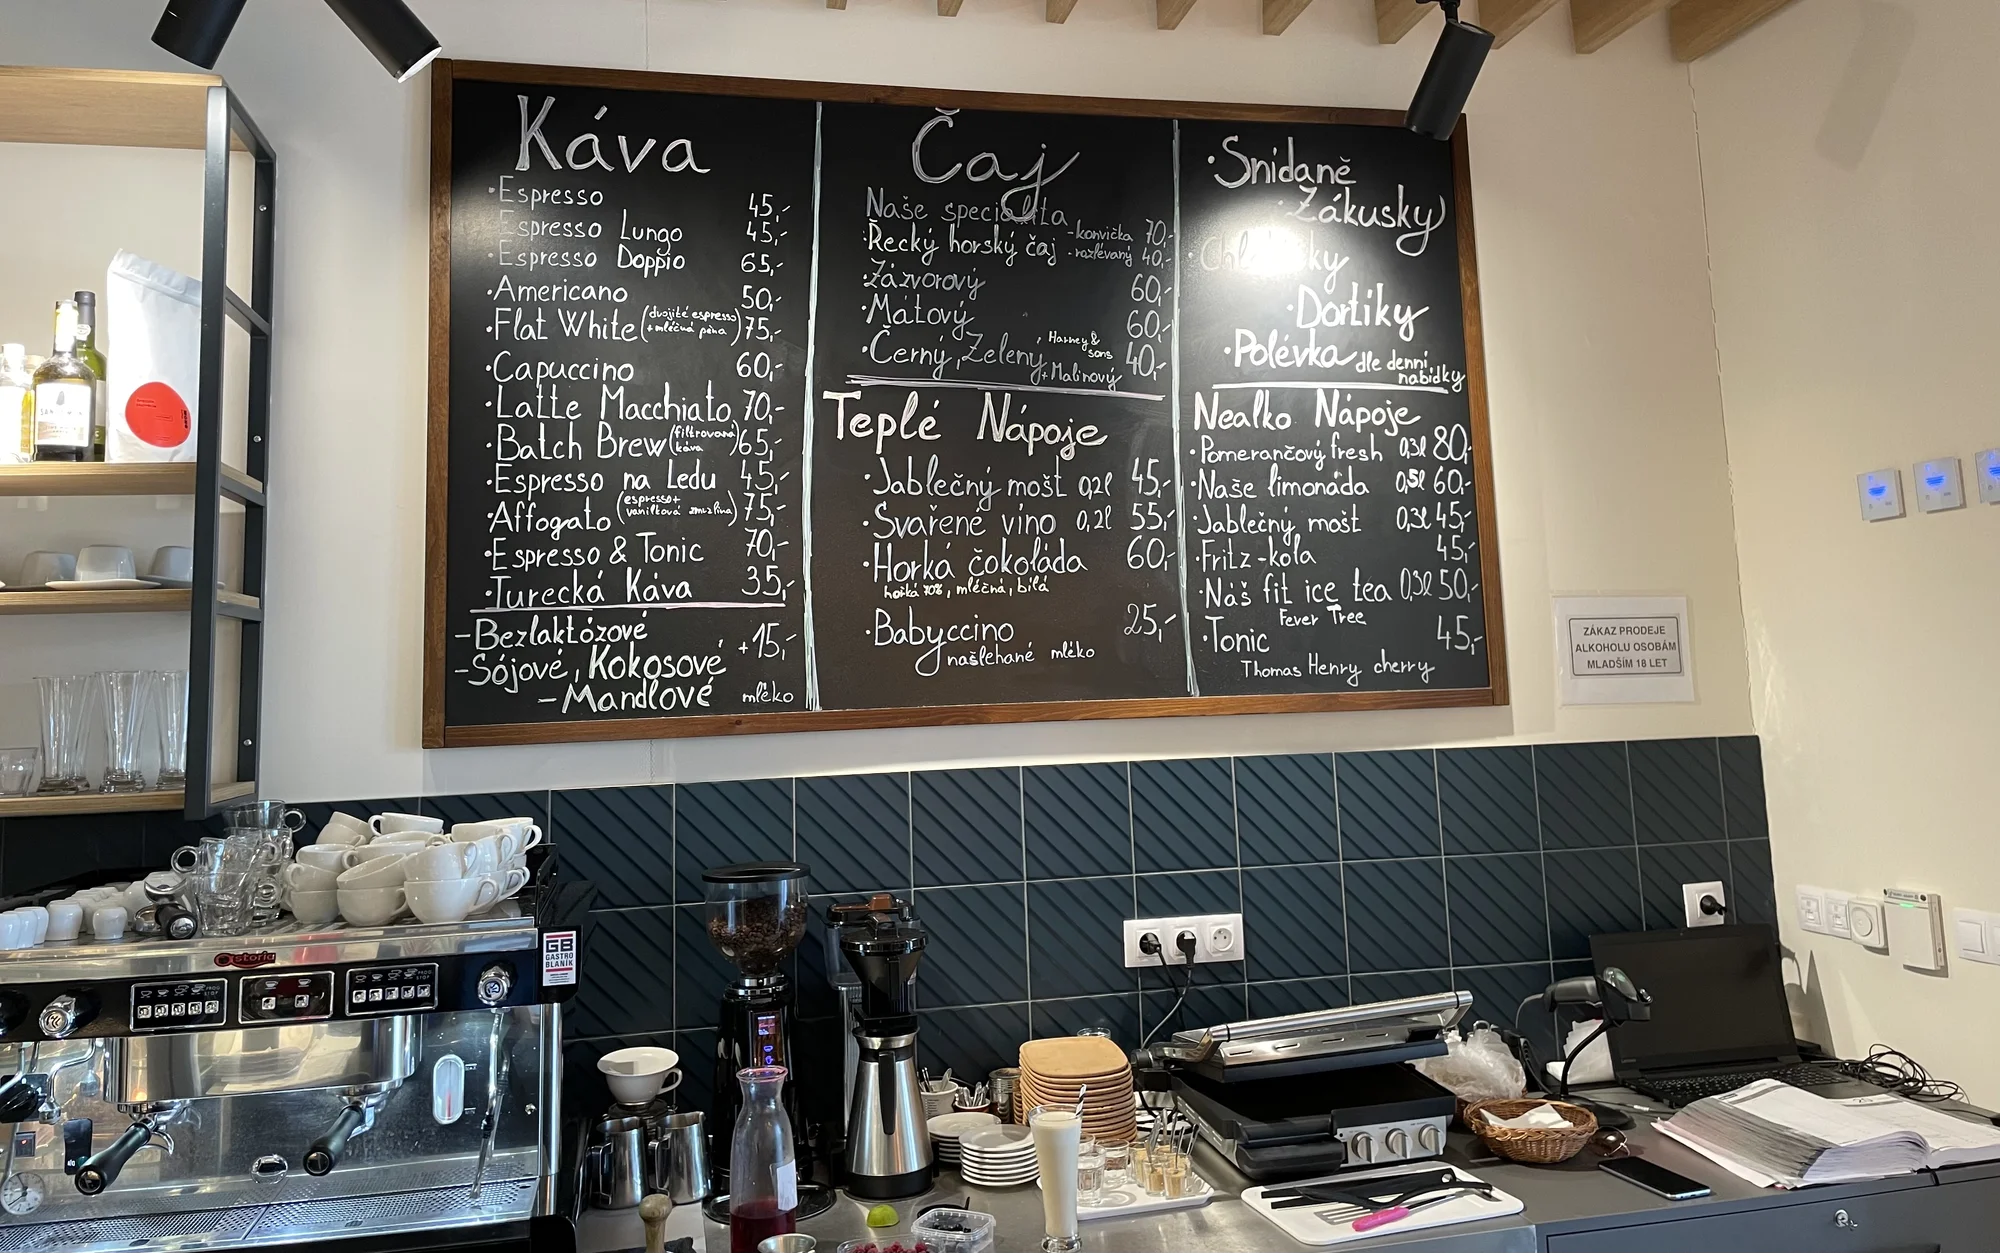 Káva
·Espresso 45,-
·Espresso Lungo 45,-
·Espresso Doppio 65,-
·Americano 50,-
·Flat White (dvojité espresso + mléčná pěna) 75,-
·Capuccino 60,-
·Latte Macchiato 70,-
·Batch Brew (filtrovaná káva) 65,-
·Espresso na Ledu 45,-
·Affogato (espresso + vanilková zmrzlina) 75,-
·Espresso & Tonic 70,-
·Turecká Káva 35,-
-Bezlaktózové
-Sójové, Kokosové +15,-
-Mandlové mléko
Čaj
Naše specialita
·Řecký horský čaj -konvička 70,-
-rozlévaný 40,-
·Zázvorový 60,-
·Mátový 60,-
·Černý, Zelený, Harney & sons 40,-
+Malinový
Teplé Nápoje
·Jablečný mošt 0,2l 45,-
·Svařené víno 0,2l 55,-
·Horká čokoláda 60,-
hořká 70%, mléčná, bílá
·Babyccino 25,-
našlehané mléko
·Snídaně
·Zákusky
·Dortíky
·Polévka dle denní nabídky
Nealko Nápoje
·Pomerančový fresh 0,3l 80,-
·Naše limonáda 0,5l 60,-
·Jablečný mošt 0,3l 45,-
·Fritz-kola 45,-
·Náš fit ice tea 0,3l 50,-
Fever Tree
·Tonic 45,-
Thomas Henry cherry
ZÁKAZ PRODEJE
ALKOHOLU OSOBÁM
MLADŠÍM 18 LET
astoria
GB
GASTRO
BLANÍK